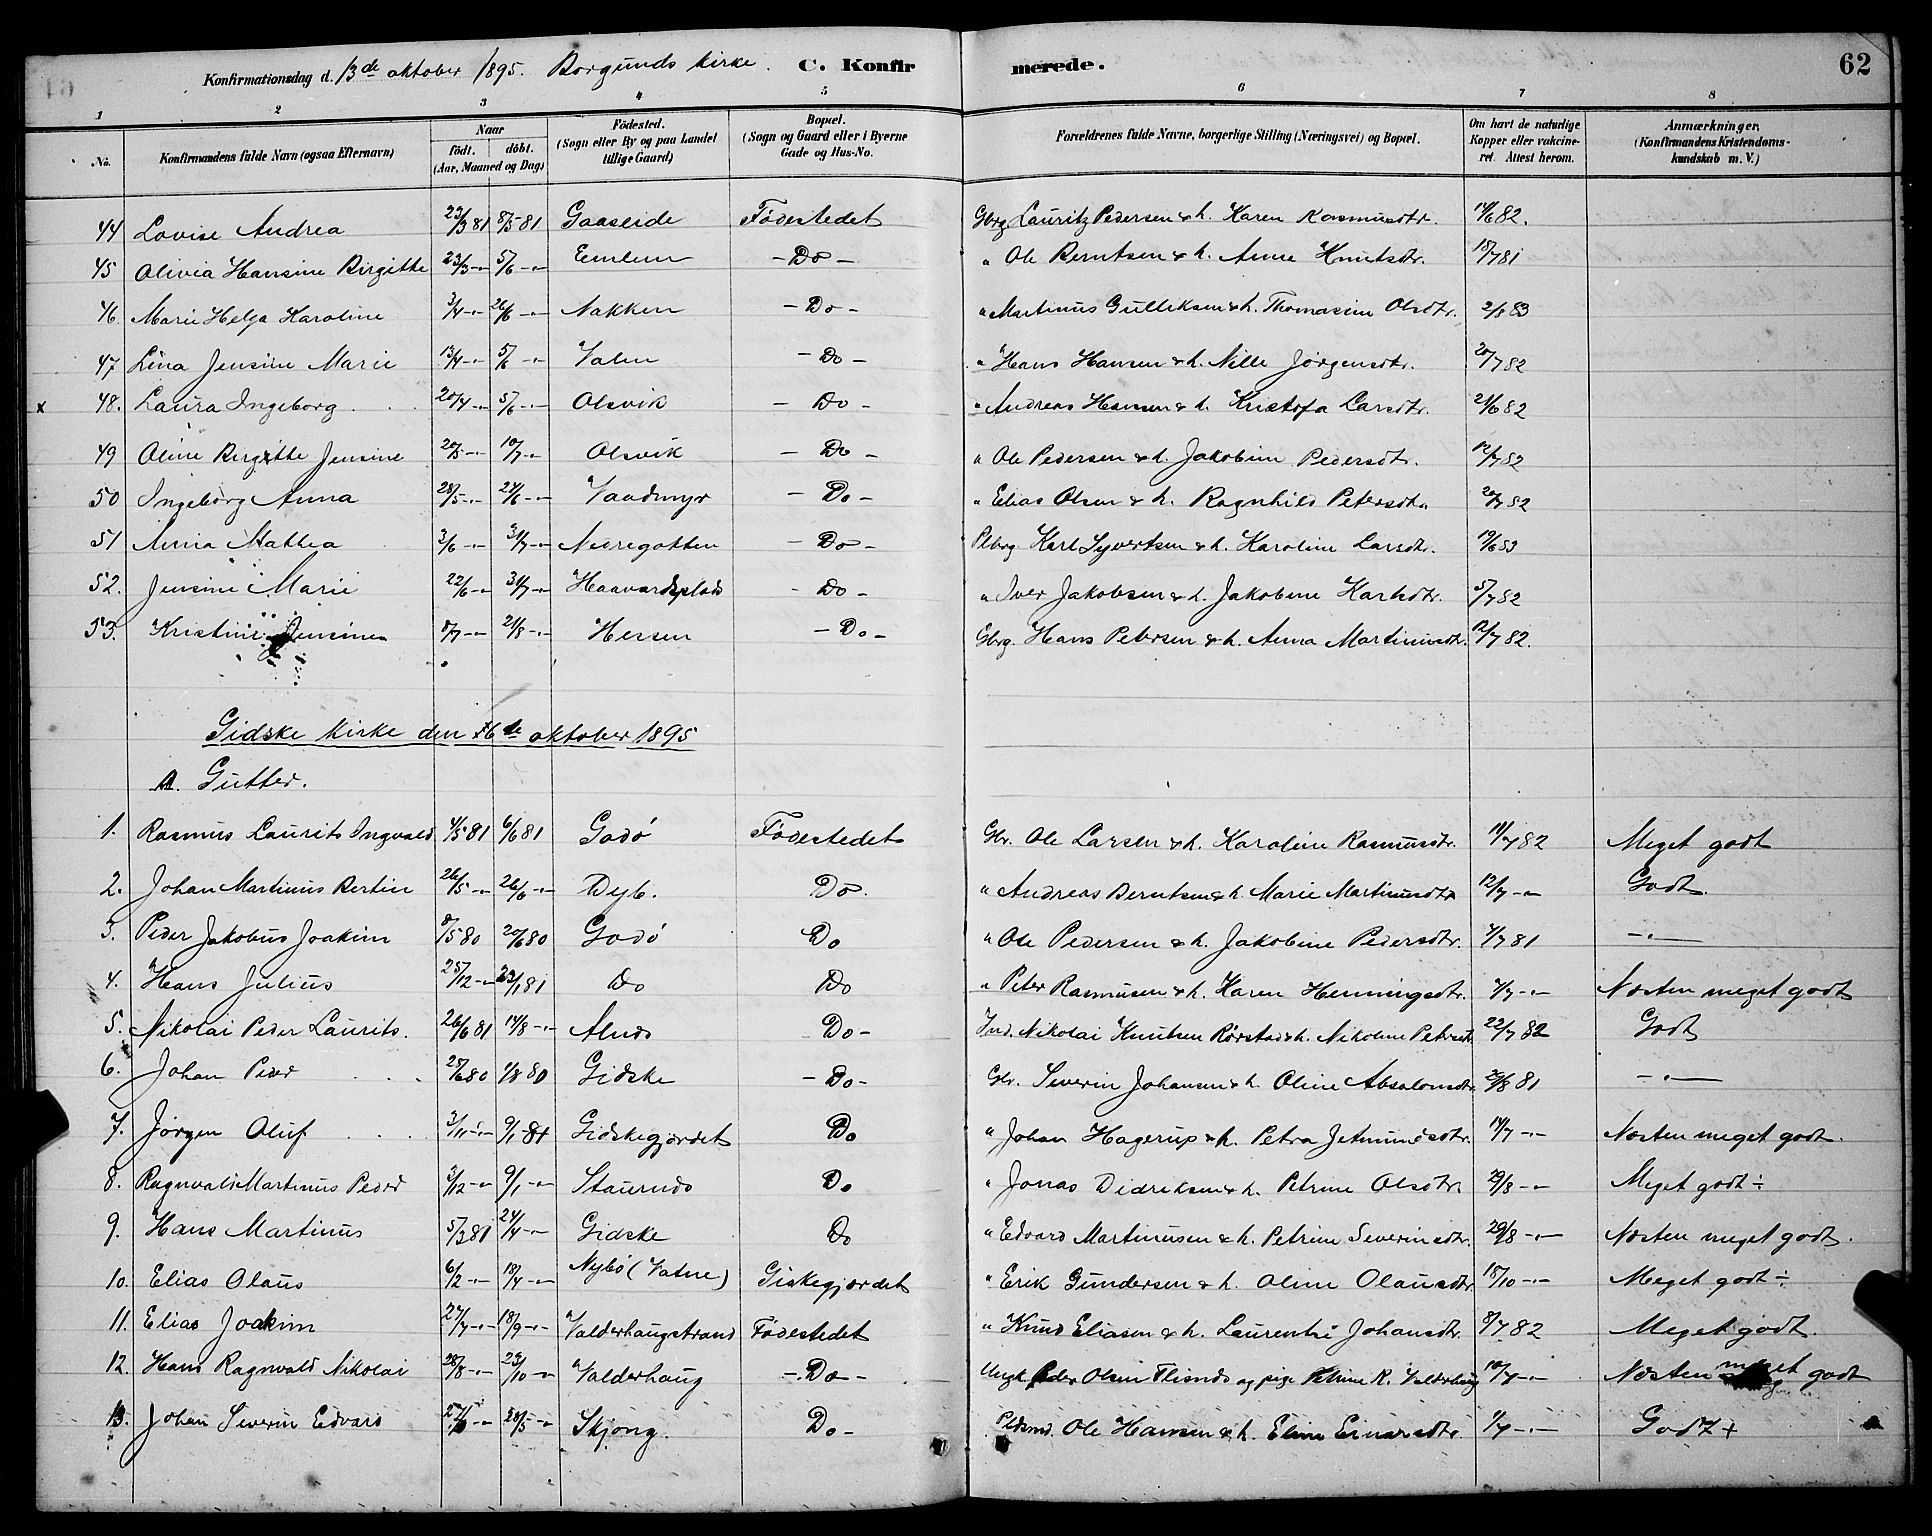 Konfirmationsdag d. 13de oktober 1895. Borgunds kirke. C. Konfirmerede. 62
1 2 3 4 5 6 7 8
No. Konfirmandens fulde Navn (ogsaa Efternavn) Naar født. døbt. (Aar, Maaned og Dag) Fødested. (Sogn eller By og paa Landet tillige Gaard) Bopæl. (Sogn og Gaard eller i Byerne Gade og Hus-No. Forældrenes fulde Navne, borgerlige Stilling (Næringsvei) og Bopæl. Om havt de naturlige Kopper eller vakcineret. Attest herom. Anmærkninger. (Konfirmandens Kristendomskundskab m. V.)
44 Lovise Andrea 23/3 81 8/5 81 Gaaseide Fødestedet Gbrg. Lauritz Pedersen & h. Karen Rasmusdtr. 14/6 82.
45 Olivia Hansine Birgitte 23/3 -"- 5/6 -"- Emlem - Do - " Ole Berntsen & h. Anne Knutsdtr. 18/7 81
46. Marie Helga Karoline 3/4 -"- 26/6 -"- Nakken - Do - " Martinus Gulliksen & h. Thomasine Olsdtr. 2/8 83
47 Lina Jensine Marie 13/4 -"- 5/6 -"- Valen - Do - " Hans Hansen & h. Nille Jørgensdtr. 20/7 82
x 48. Laura Ingeborg 20/4 -"- 5/6 -"- Olsvik - Do - " Andreas Hansen & h. Kristofa Larsdtr. 21/6 82
49 Oline Birgitte Jensine 20/5 -"- 10/7 -"- Olsvik - Do - " Ole Pedersen & h. Jakobine Pedersdtr. 12/7 82
50 Ingeborg Anna 28/5 -"- 24/6 -"- Vaadmyr - Do - " Elias Olsen & h. Ragnhild Petersdtr. 20/7 82
51 Anna Mathea 3/6 -"- 31/7 -"- Nedregotten - Do - Pbrg. Karl Syvertsen & h. Karoline Larsdtr. 19/6 83
52. Jensine Marie 22/6 -"- 31/7 -"- Haavardsplads - Do - " Iver Jakobsen & h. Jakobine Karlsdtr. 5/7 82
53. Kristine Jensine 8/7 -"- 21/8 -"- Hessen - Do - Gbrg. Hans Petersen & h. Anna Martinusdtr. 12/7 82.
Gidske kirke den 16de oktober 1895
A. Gutter.
1. Rasmus Laurits Ingvald 4/5 81 6/6 81 Godø Fødestedet Gbr. Ole Larsen & h. Karoline Rasmusdtr. 11/7 82 Meget godt
2. Johan Martinus Bertin 26/5 -"- 26/6 -"- Dyb. Do. " Andreas Berntsen & h. Marie Martinusdtr 12/7 -"- Godt
3. Peder Jakobus Joakim 8/5 80 20/6 80 Godø Do " Ole Pedersen & h. Jakobine Pedersdtr. 4/7 81 -"-
4. Hans Julius 25/12 -"- 23/1 81 Do Do " Peter Rasmusen & h. Karen Henningsdtr. 4/7 -"- Næsten meget godt
5. Nikolai Peder Laurits. 26/6 81 14/8 -"- Alnes Do - Ind. Nikolai Knutsen Rørstad & h. Nikoline Petersdtr 22/7 82 Godt
6. Johan Peder 28/6 80 1/8 80 Gidske - Do - Gbr. Severin Johansen & h. Oline Absalonsdtr. 29/8 81 -"-
7. Jørgen Oluf 3/11 -"- 9/1 -81 Gidskegjerdet Do " Johan Hagerup & h. Petra Jetmundsdtr. 14/7 -"- Næsten meget godt.
8. Ragnvald Martinus Peder 3/12 -"- 9/1 -"- Staurnes Do " Jonas Didriksen & h. Petrine Olsdtr. 29/8 -"- Meget godt ÷
9. Hans Martinus 5/3 81 24/4 -"- Gidske Do " Edvard Martinusen & h. Petrine Severinsdtr. 29/8 -"- Næsten meget godt.
10. Elias Olaus 6/2 -"- 18/4 -"- Nybø (Vatne) Giskegjerdet " Erik Gundersen & h. Oline Olausdtr. 18/10 -"- Meget godt ÷
11. Elias Joakim 27/7 -"- 18/9 -"- Valderhaugstrand Fødestedet " Knud Eliasen & h. Laurentse Johansdtr. 8/7 82 Meget godt.
12. Hans Ragnvald Nikolai 28/8 -"- 23/10 -"- Valderhaug -.Do - Ungk. Peder Olsen Flisnes og pige Petrine R. Valderhaug 10/7 -"- Næsten meget godt
13. Johan Severin Edvard -"- 28/5 -"- Skjong. Do - Ole Hansen & h. Eline Einarsdtr. 1/7 -"- Godt +